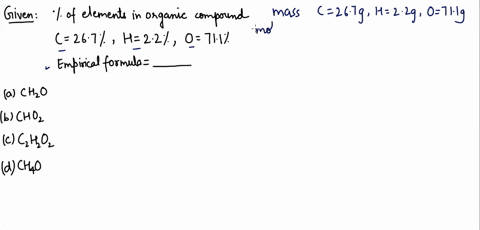 Given: % of elements in organic compound mass C=26.7g, H=2.2g, O=71.1g
C=26.7%, H=2.2%, O=71.1% mol
Empirical formula=
(a) CH₂O
(b) CHO₂
(c) C₂H₂O₂
(d) CH₄O